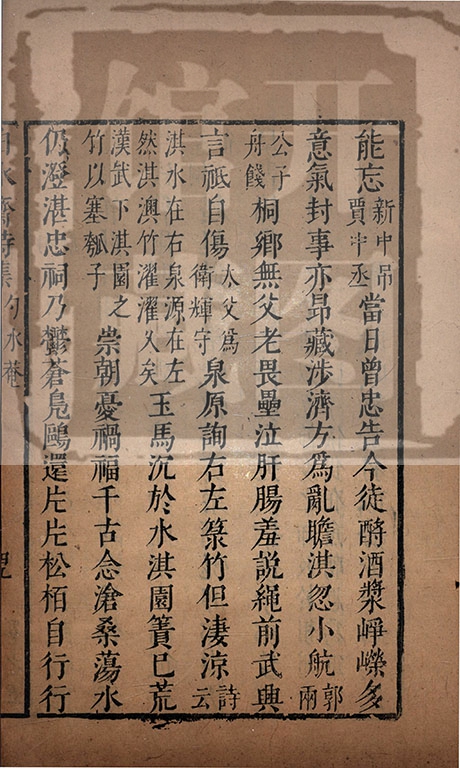 能忘新中吊賈中丞當日曾忠告今徒酹酒漿崢嶸多
意氣封事亦昂藏涉濟方為亂瞻淇忽小航郭兩
公子舟餞桐鄉無父老畏壘泣肝腸羞說繩前武興
言祗自傷太父為衛輝守泉原詢右左菉竹但淒涼詩云
淇水在右泉源在左然淇澳竹濯濯久矣玉馬沉於水淇園簀已荒
漢武下淇園之竹以塞瓠子崇朝憂禍福千古念滄桑蕩水
仍澄湛忠祠乃鬱蒼鳧鷗還片片松栢自行行